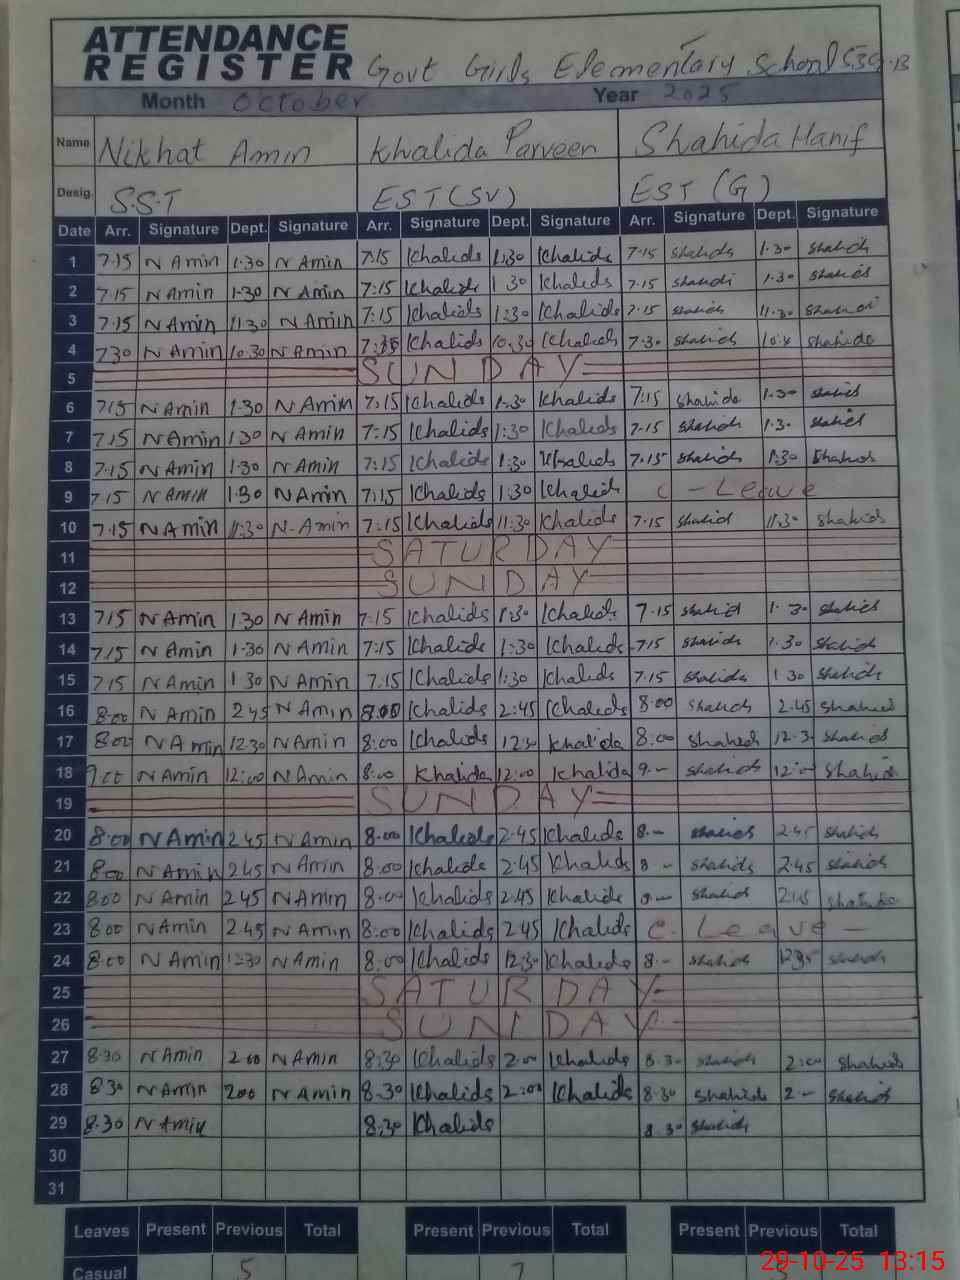 ATTENDANCE
REGISTER Govt Girls Elementary School 539.B
Month October Year 2025
Name Nikhat Amin Khalida Parveen Shahida Hanif
Desig. S.S.T EST (SV) EST (G)
Date Arr. Signature Dept. Signature Arr. Signature Dept. Signature Arr. Signature Dept. Signature
1 7.15 N Amin 1.30 N Amin 7:15 Khalida 1:30 Khalida 7.15 Shahida 1.30 Shahida
2 7.15 N Amin 1.30 N Amin 7:15 Khalida 1 30 Khalida 7.15 Shahida 1.30 Shahida
3 7.15 N Amin 11.30 N Amin 7:15 Khalida 11:30 Khalida 7.15 Shahida 11.30 Shahida
4 730 N Amin 10.30 N Amin Khalida 10.30 Khalida 7.30 Shahida Shahida
5 SUNDAY
6 715 N Amin 1.30 N Amin 7:15 Khalida 1:30 Khalida 7:15 Shahida 1.30 Shahida
7 7.15 N Amin 130 N Amin 7:15 Khalida 1:30 Khalida 7.15 Shahida 1.30 Shahida
8 7.15 N Amin 1.30 N Amin 7:15 Khalida 1:30 Khalida 7.15 Shahida 1.30 Shahida
9 7.15 N Amin 1.30 N Amin 7:15 Khalida 1:30 Khalida C - Leave
10 7.15 N Amin 11.30 N.Amin 7:15 Khalida 11:30 Khalida 7.15 Shahida 11.30 Shahida
11 SATURDAY
12 SUNDAY
13 7.15 N Amin 1.30 N Amin 7:15 Khalida 1:30 Khalida 7.15 Shahida 1.30 Shahida
14 7.15 N Amin 1.30 N Amin 7:15 Khalida 1:30 Khalida 7.15 Shahida 1.30 Shahida
15 715 N Amin 1 30 N Amin 7:15 Khalida 1:30 Khalida 7.15 Shahida 1 30 Shahida
16 8.00 N Amin 2 45 N Amin 8:00 Khalida 2:45 Khalida 8.00 Shahida 2.45 Shahida
17 8.00 N Amin 12.30 N Amin 8:00 Khalida 12:30 Khalida 8:00 Shahida 12.30 Shahida
18 9.00 N Amin 12:00 N Amin 8:00 Khalida 12:00 Khalida 9.- Shahida 12:00 Shahida
19 SUNDAY
20 8.00 N Amin 2 45 N Amin 8.00 Khalida 2.45 Khalida 8.- Shahida 2.45 Shahida
21 8.00 N Amin 2.45 N Amin 8.00 Khalida 2.45 Khalida 8 - Shahida 2.45 Shahida
22 8.00 N Amin 2.45 N Amin 8.00 Khalida 2.45 Khalida 8.- Shahida 2.45 Shahida
23 8 00 N Amin 2.45 N Amin 8:00 Khalida 2.45 Khalida C. Leave -
24 8.00 N Amin 1230 N Amin 8.00 Khalida 12.30 Khalida 8.- Shahida Shahida
25 SATURDAY
26 SUNDAY
27 8.30 N Amin 2 00 N Amin 8:30 Khalida 2.00 Khalida 8.30 Shahida 2:00 Shahida
28 8 30 N Amin 200 N Amin 8.30 Khalida 2:00 Khalida 8.30 Shahida 2 - Shahida
29 8.30 N Amin 8:30 Khalida 8.30 Shahida
30
31
Leaves Present Previous Total Present Previous Total Present Previous Total
Casual 5 7
29-10-25 13:15